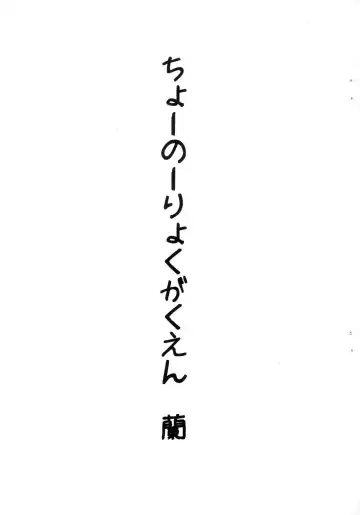 ちょーのーりょくがくえん 蘭